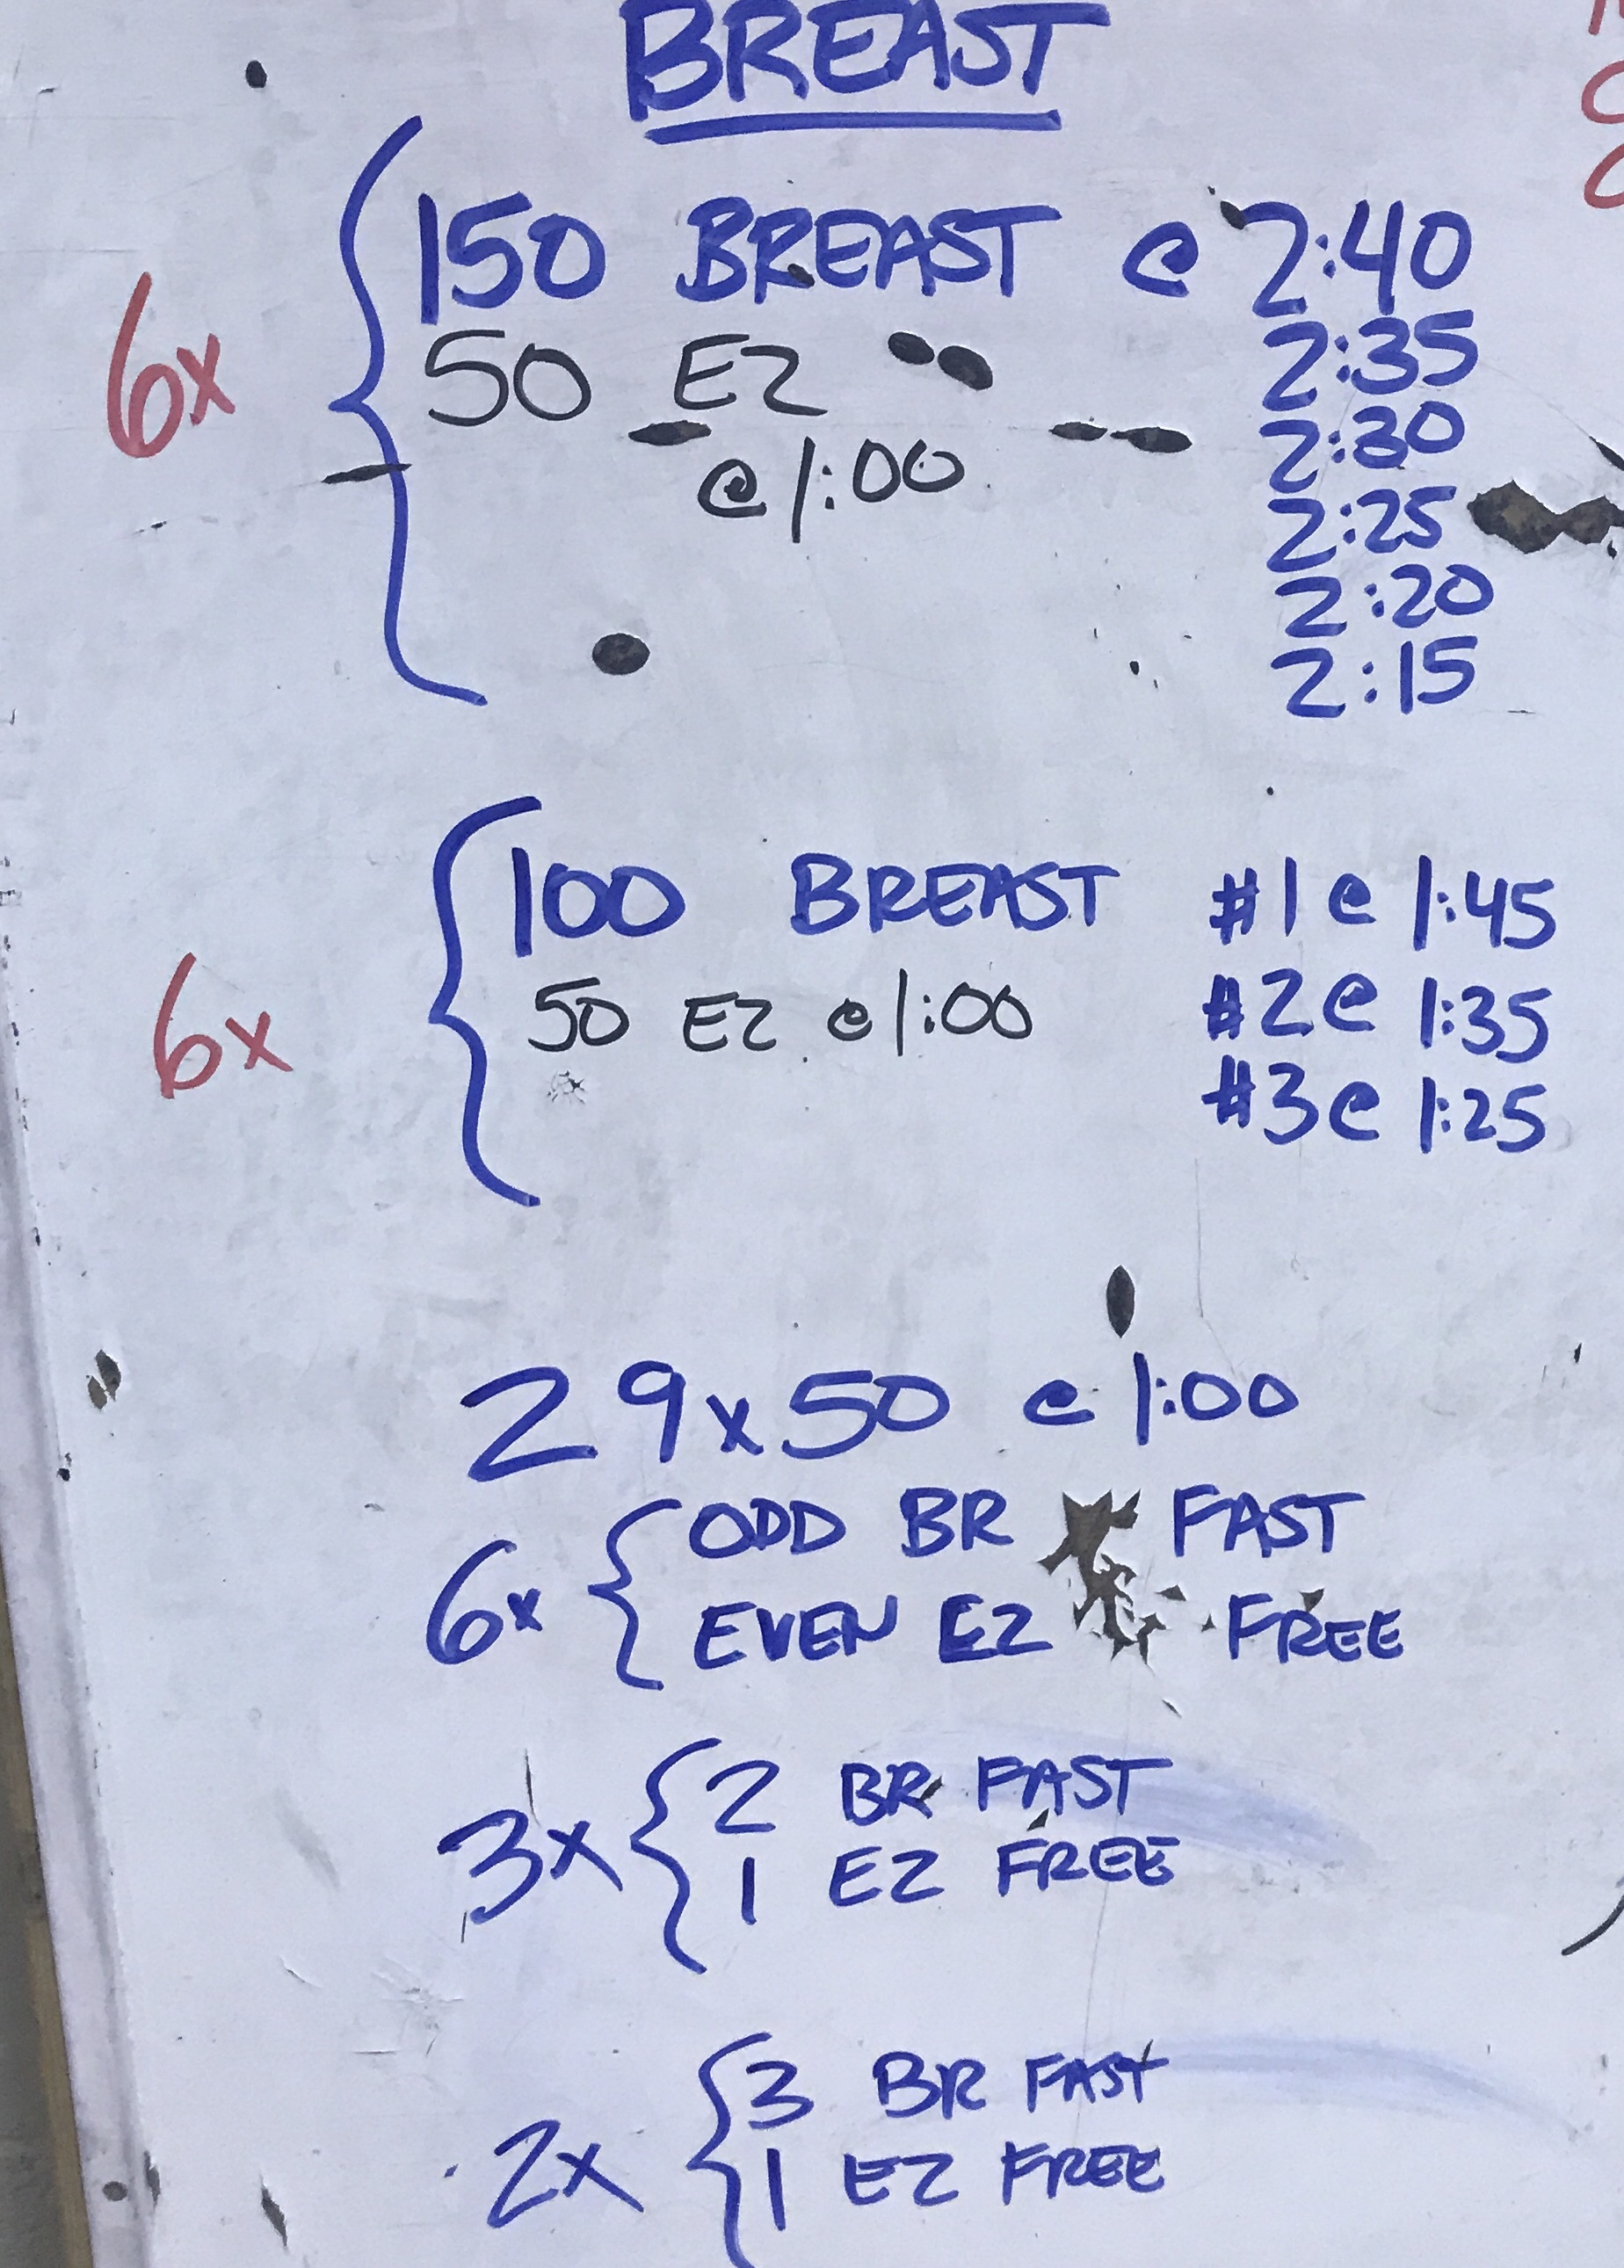 BREAST
6x { 150 BREAST @ 2:40
50 EZ 2:35
@ 1:00 2:30
2:25
2:20
2:15
6x { 100 BREAST #1 @ 1:45
50 EZ @ 1:00 #2 @ 1:35
#3 @ 1:25
29x50 @ 1:00
6x { ODD BR FAST
EVEN EZ FREE
3x { 2 BR FAST
1 EZ FREE
2x { 3 BR FAST
1 EZ FREE